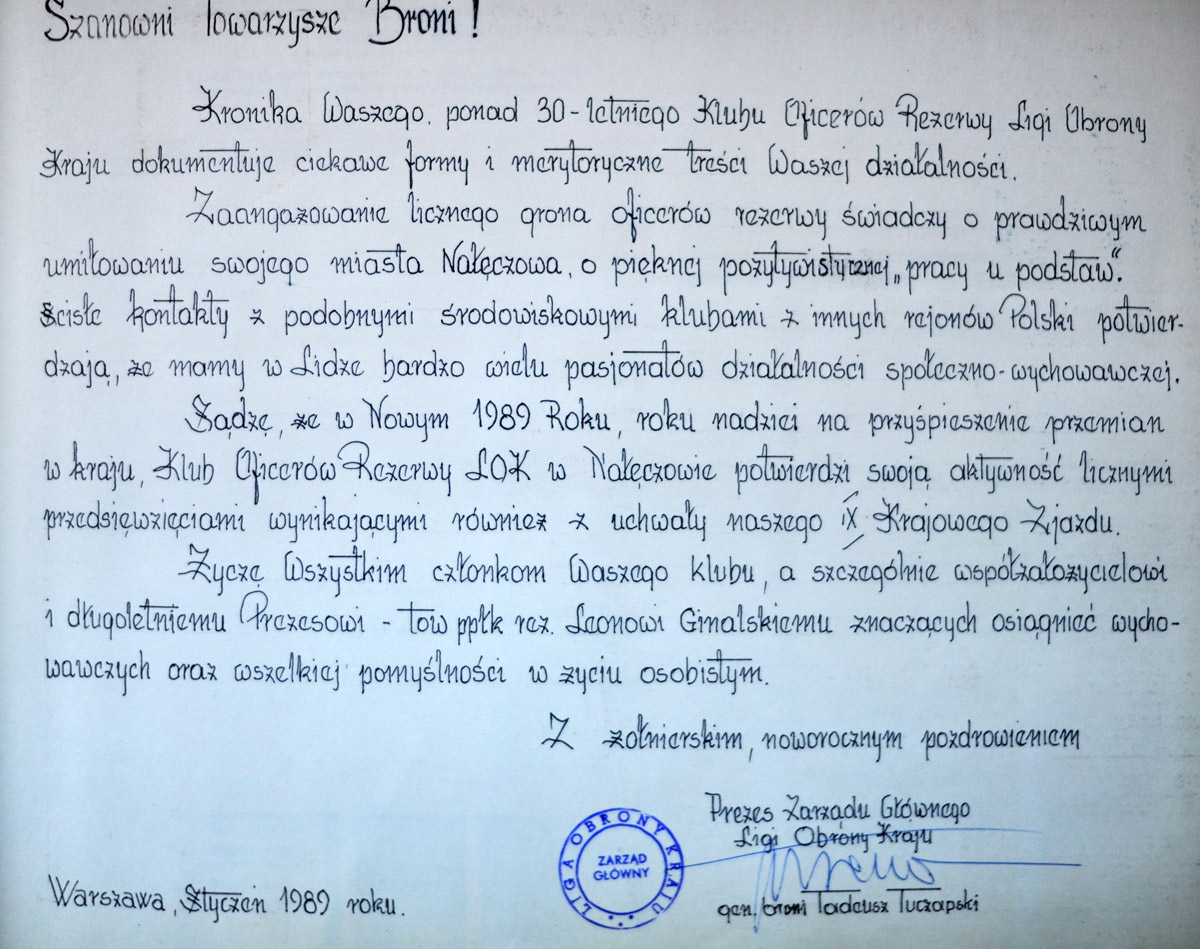 Szanowni Towarzysze Broni!
Kronika Waszego, ponad 30-letniego Klubu Oficerów Rezerwy Ligi Obrony
Kraju dokumentuje ciekawe formy i merytoryczne treści Waszej działalności.
Zaangażowanie licznego grona oficerów rezerwy świadczy o prawdziwym
umiłowaniu swojego miasta Nałęczowa, o pięknej pozytywistycznej „pracy u podstaw".
Ścisłe kontakty z podobnymi środowiskowymi klubami z innych rejonów Polski potwier-
dzają, że mamy w Lidze bardzo wielu pasjonatów działalności społeczno-wychowawczej.
Sądzę, że w Nowym 1989 Roku, roku nadziei na przyśpieszenie przemian
w kraju, Klub Oficerów Rezerwy LOK w Nałęczowie potwierdzi swoją aktywność licznymi
przedsięwzięciami wynikającymi również z uchwały naszego IX Krajowego Zjazdu.
Życzę Wszystkim członkom Waszego klubu, a szczególnie współzałożycielowi
i długoletniemu Prezesowi - tow ppłk rez. Leonowi Ginalskiemu znaczących osiągnieć wycho-
wawczych oraz wszelkiej pomyślności w życiu osobistym.
Z żołnierskim, noworocznym pozdrowieniem
Prezes Zarządu Głównego
Ligi Obrony Kraju
gen. broni Tadeusz Tuczapski
LIGA OBRONY KRAJU
ZARZĄD
GŁÓWNY
Warszawa, Styczeń 1989 roku.